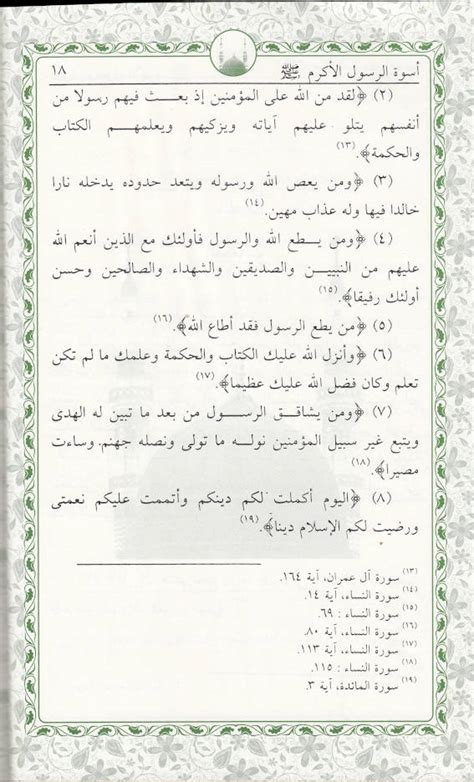 أسوة الرسول الأكرم ﷺ ١٨
(٢) ﴿لقد من الله على المؤمنين إذ بعث فيهم رسولا من
أنفسهم يتلو عليهم آياته ويزكيهم ويعلمهم الكتاب
والحكمة﴾.(١٣)
(٣) ﴿ومن يعص الله ورسوله ويتعد حدوده يدخله نارا
خالدا فيها وله عذاب مهين.(١٤)
(٤) ﴿ومن يطع الله والرسول فأولئك مع الذين أنعم الله
عليهم من النبيين والصديقين والشهداء والصالحين وحسن
أولئك رفيقا﴾.(١٥)
(٥) ﴿من يطع الرسول فقد أطاع الله﴾.(١٦)
(٦) ﴿وأنزل الله عليك الكتاب والحكمة وعلمك ما لم تكن
تعلم وكان فضل الله عليك عظيما﴾.(١٧)
(٧) ﴿ومن يشاقق الرسول من بعد ما تبين له الهدى
ويتبع غير سبيل المؤمنين نوله ما تولى ونصله جهنم، وساءت
مصيرا﴾.(١٨)
(٨) ﴿اليوم أكملت لكم دينكم وأتممت عليكم نعمتى
ورضيت لكم الإسلام دينا﴾.(١٩)
(١٣) سورة آل عمران، آية ١٦٤.
(١٤) سورة النساء، آية ١٤.
(١٥) سورة النساء : ٦٩.
(١٦) سورة النساء، آية ٨٠.
(١٧) سورة النساء، آية ١١٣.
(١٨) سورة النساء : ١١٥.
(١٩) سورة المائدة، آية ٣.